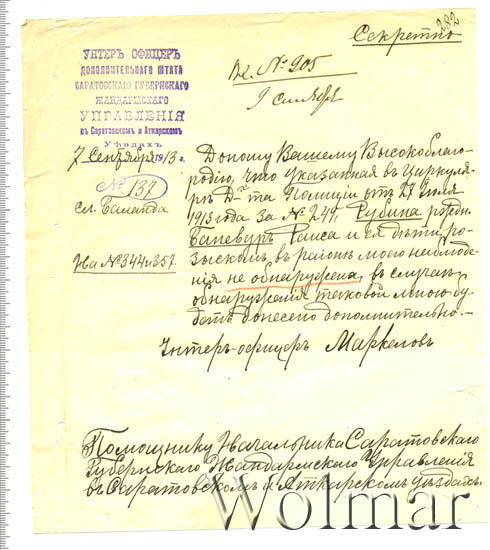 282
Секретно
Вх. № 905
9 сентября
УНТЕРЪ ОФИЦЕРЪ
ДОПОЛНИТЕЛЬНАГО ШТАТА
САРАТОВСКАГО ГУБЕРНСКАГО
ЖАНДАРМСКАГО
УПРАВЛЕНІЯ
въ Саратовскомъ и Аткарскомъ
Уѣздахъ
7 Сентября 1913 г.
№ 137
сл. Баланда
На № 344 и 357.
Доношу Вашему Высокоблаго-
родію, что указанная въ Циркуля-
рѣ Д-та Полиціи отъ 27 Июля
1913 года за № 249, Рубина
Раиса и ея дѣти ро-
зыскомъ, въ районѣ моего наблюде-
нія не обнаружена, въ случаѣ
обнаруженія таковой мною бу-
детъ донесено дополнительно.—
Унтеръ-офицеръ Маркеловъ
Помощнику Начальника Саратовскаго
Губернскаго Жандармскаго Управленія
въ Саратовскомъ и Аткарскомъ уѣздахъ.
Wolmar